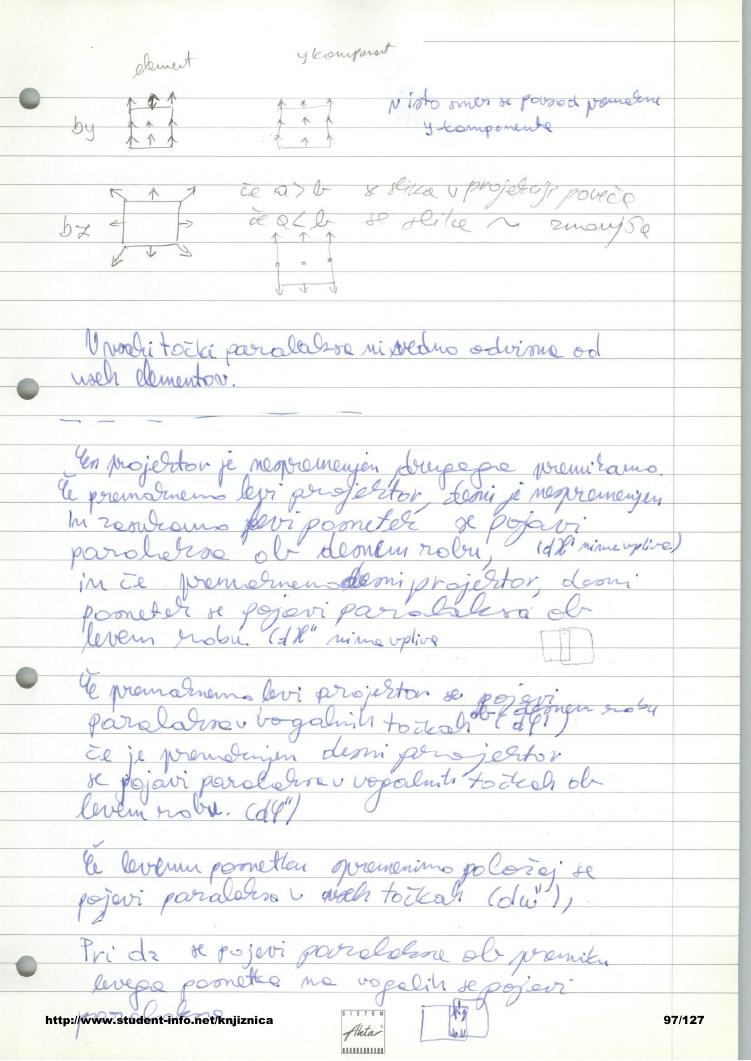 element   y komponent
by   v isto smer se povsod premakne
y komponenta
če a > b se slika v projekciji poveča
bz   če a < b se slika ~ zmanjša
V vsaki točki paralaksa ni vedno odvisna od
vseh elementov.
En projektor je nespremenjen, drugega premikamo.
Če premaknemo levi projektor, desni je nespremenjen
in zasukamo levi posnetek se pojavi
paralaksa ob desnem robu, (dℋ' nima vpliva)
in če premaknemo desni projektor, desni
posnetek se pojavi paralaksa ob
levem robu. (dℋ" nima vpliva
Če premaknemo levi projektor se pojavi
paralaksa v vogalnih točkah ob desnem robu (dφ')
če je premaknjen desni projektor
se pojavi paralaksa v vogalnih točkah ob
levem robu. (dφ")
Če levemu posnetku spremenimo položaj se
pojavi paralaksa v vseh točkah (dω"),
Pri dz se pojavi paralaksa ob premiku
levega posnetka na vogalih se pojavi
paralaksa
http://www.student-info.net/knjiznica   SISTEM Akta   97/127